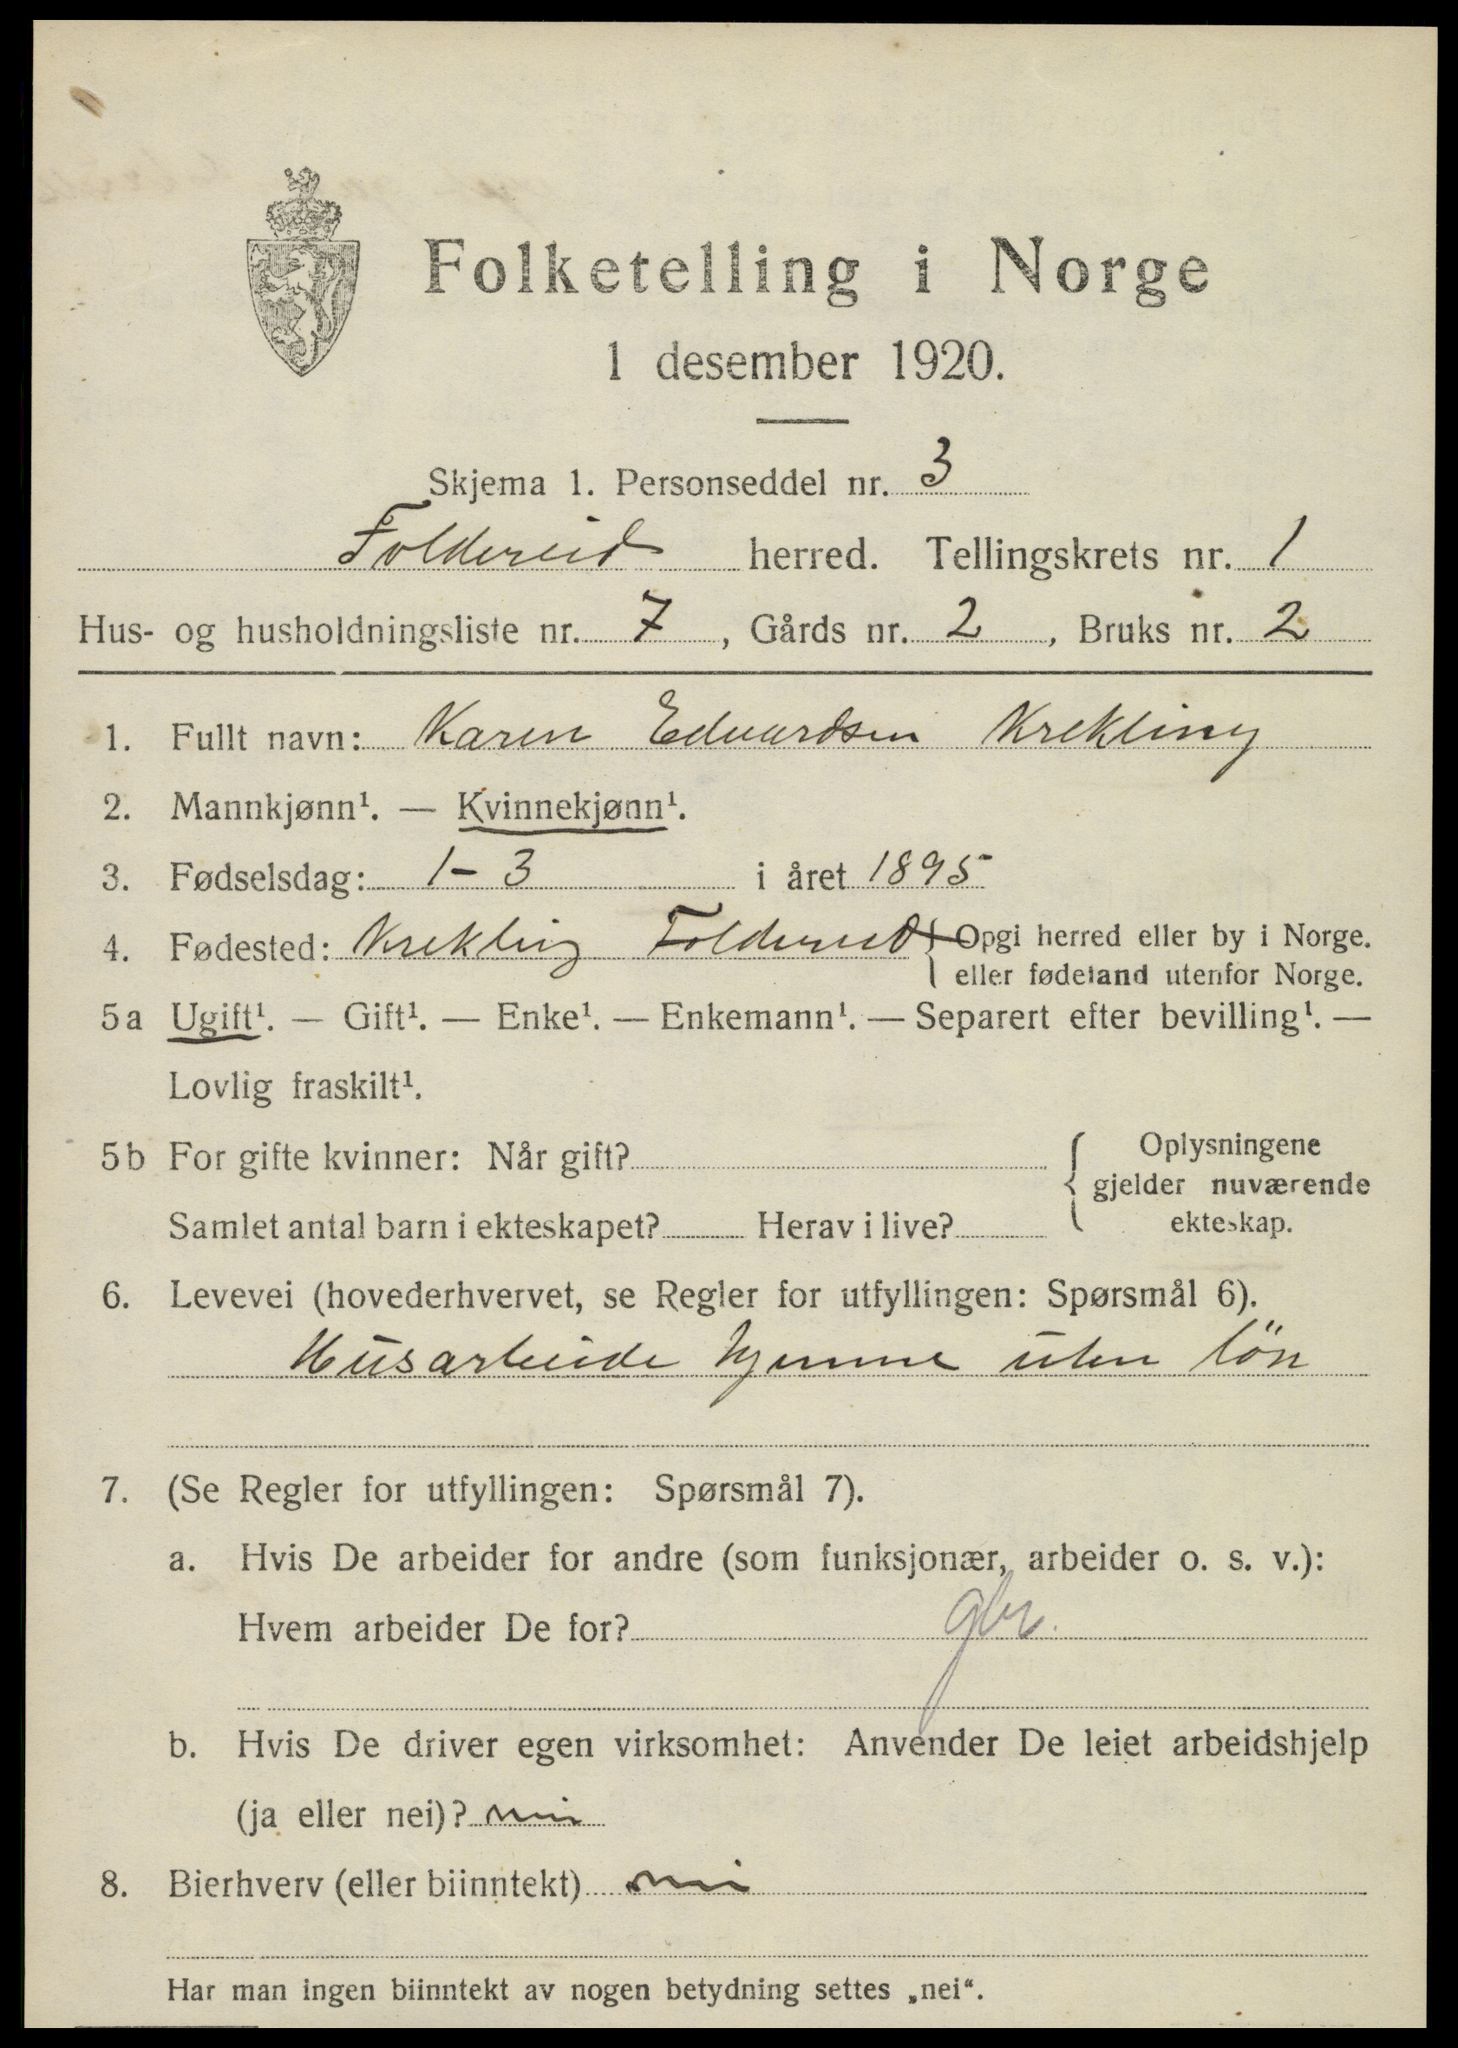 Folketelling i Norge
1 desember 1920.
Skjema 1. Personseddel nr. 3
Foldereid herred. Tellingskrets nr. 1
Hus- og husholdningsliste nr. 7, Gårds nr. 2, Bruks nr. 2
1. Fullt navn: Karen Edvardsen Krekling
2. Mannkjønn¹. — Kvinnekjønn¹.
3. Fødselsdag: 1-3 i året 1895
4. Fødested: Krekling Foldereid { Opgi herred eller by i Norge.
eller fødeland utenfor Norge.
5a Ugift¹. — Gift¹. — Enke¹. — Enkemann¹. — Separert efter bevilling¹. —
Lovlig fraskilt¹.
5b For gifte kvinner: Når gift?
Samlet antal barn i ekteskapet? Herav i live?
{ Oplysningene
gjelder nuværende
ekteskap.
6. Levevei (hovederhvervet, se Regler for utfyllingen: Spørsmål 6).
Husarbeide hjemme uten løn
7. (Se Regler for utfyllingen: Spørsmål 7).
a. Hvis De arbeider for andre (som funksjonær, arbeider o. s. v.):
Hvem arbeider De for? gbr.
b. Hvis De driver egen virksomhet: Anvender De leiet arbeidshjelp
(ja eller nei)? nei
8. Bierhverv (eller biinntekt) nei
Har man ingen biinntekt av nogen betydning settes „nei“.